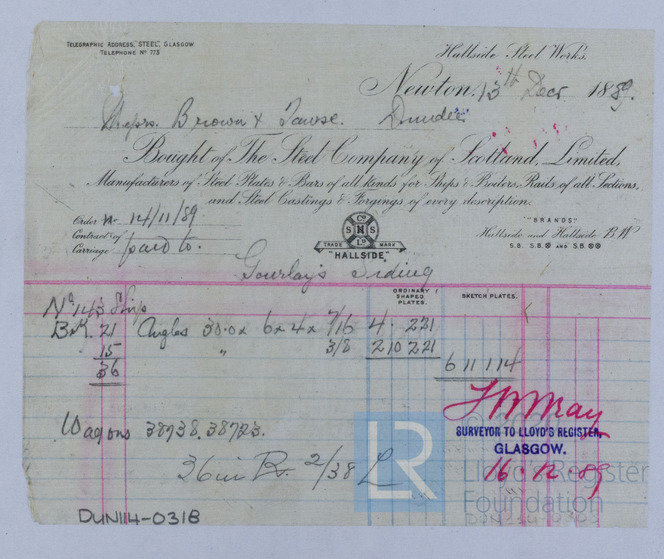 TELEGRAPHIC ADDRESS, "STEEL", GLASGOW
TELEPHONE No 773
Hallside Steel Works.
Newton, 13th Decr 1889.
Messrs. Brown & Tawse. Dundee
Bought of The Steel Company of Scotland, Limited,
Manufacturers of Steel Plates & Bars of all kinds for Ships & Boilers, Rails of all Sections,
and Steel Castings & Forgings of every description.
Order No 14/11/89
Contract of
Carriage paid to.
Co
S H S
LD
TRADE MARK
"HALLSIDE"
"BRANDS"
Hallside and Hallside B.W
S.B. S.B.⊗ AND S.B.⊗⊗
Gourlays siding
ORDINARY SHAPED PLATES.
SKETCH PLATES.
No 143 Ship
BK. 21 Angles 30.0 x 6 x 4 x 7/16 4 . 2 21
15 " 3/8 2 10 2 21
36 6 11 1 14
Wagons 38938, 38723.
36 in 2/38 L
SURVEYOR TO LLOYD'S REGISTER,
GLASGOW.
16.12.89
LR
Lloyd's Register
Foundation
DUN114-031B